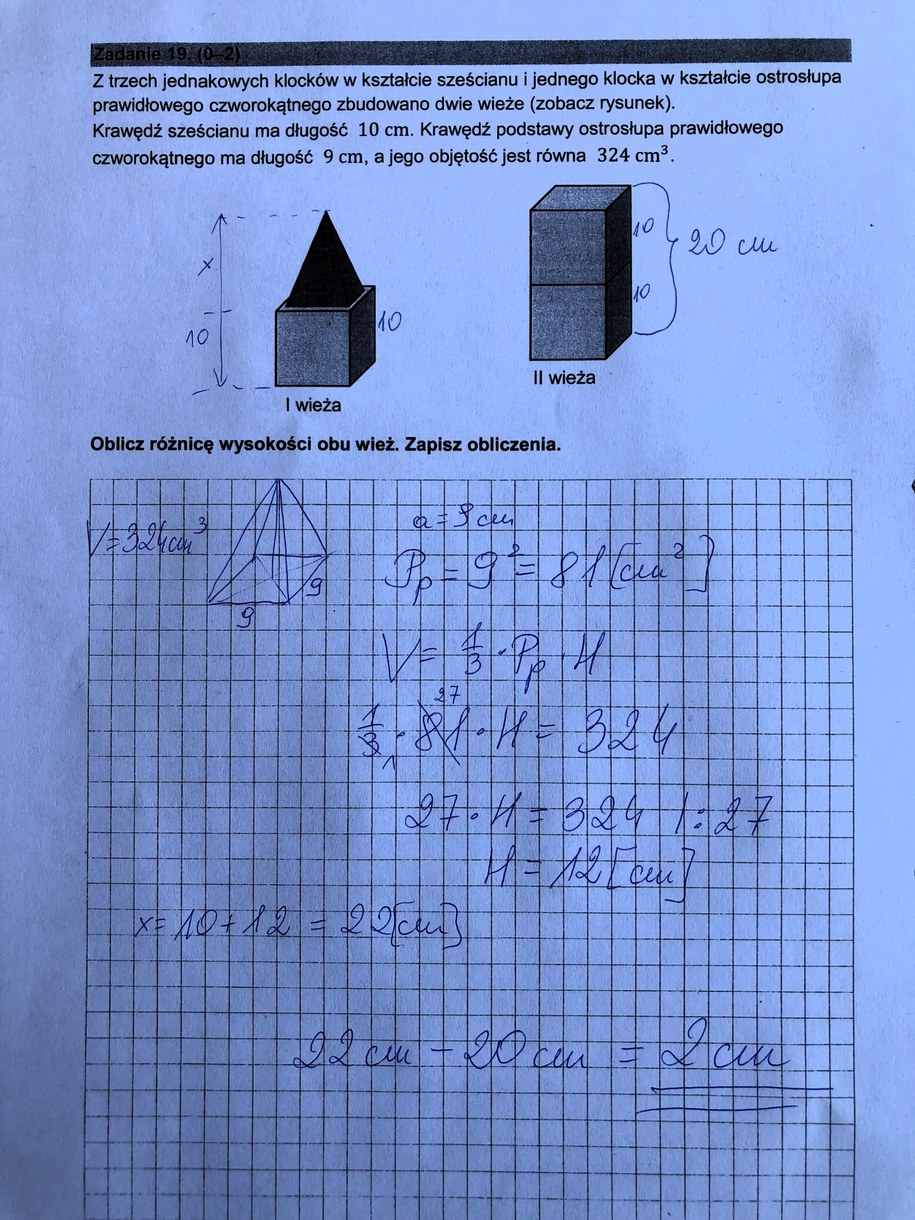 Zadanie 19. (0–2)
Z trzech jednakowych klocków w kształcie sześcianu i jednego klocka w kształcie ostrosłupa
prawidłowego czworokątnego zbudowano dwie wieże (zobacz rysunek).
Krawędź sześcianu ma długość 10 cm. Krawędź podstawy ostrosłupa prawidłowego
czworokątnego ma długość 9 cm, a jego objętość jest równa 324 cm³.
x
10
10
I wieża
10
10
20 cm
II wieża
Oblicz różnicę wysokości obu wież. Zapisz obliczenia.
V=324cm³
9
9
a = 9 cm
Pp = 9² = 81 [cm²]
V = 1/3 · Pp · H
27
1/3 · 81 · H = 324
1
27 · H = 324 |: 27
H = 12 [cm]
x = 10 + 12 = 22 [cm]
22 cm - 20 cm = 2 cm